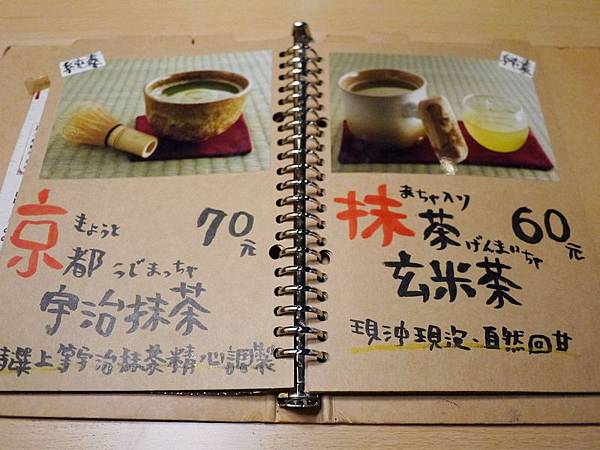 京都
きょうと
70元
うじまっちゃ
宇治抹茶
精選上等宇治抹茶精心調製
抹茶
まちゃ入り
60元
げんまいちゃ
玄米茶
現沖現泡、自然回甘